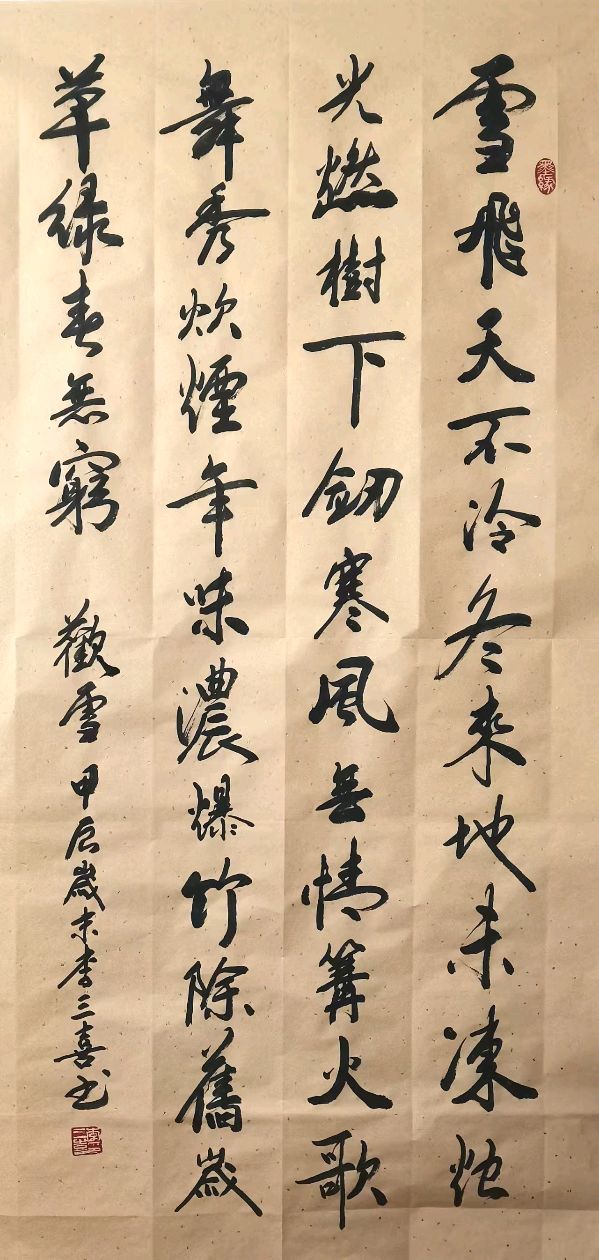 雪飛天不冷冬來地未凍烛
光燃樹下劒寒風無情篝火歌
舞秀炊煙年味濃爆竹除舊歲
草綠春無窮
觀雪 甲辰歲末李三喜书